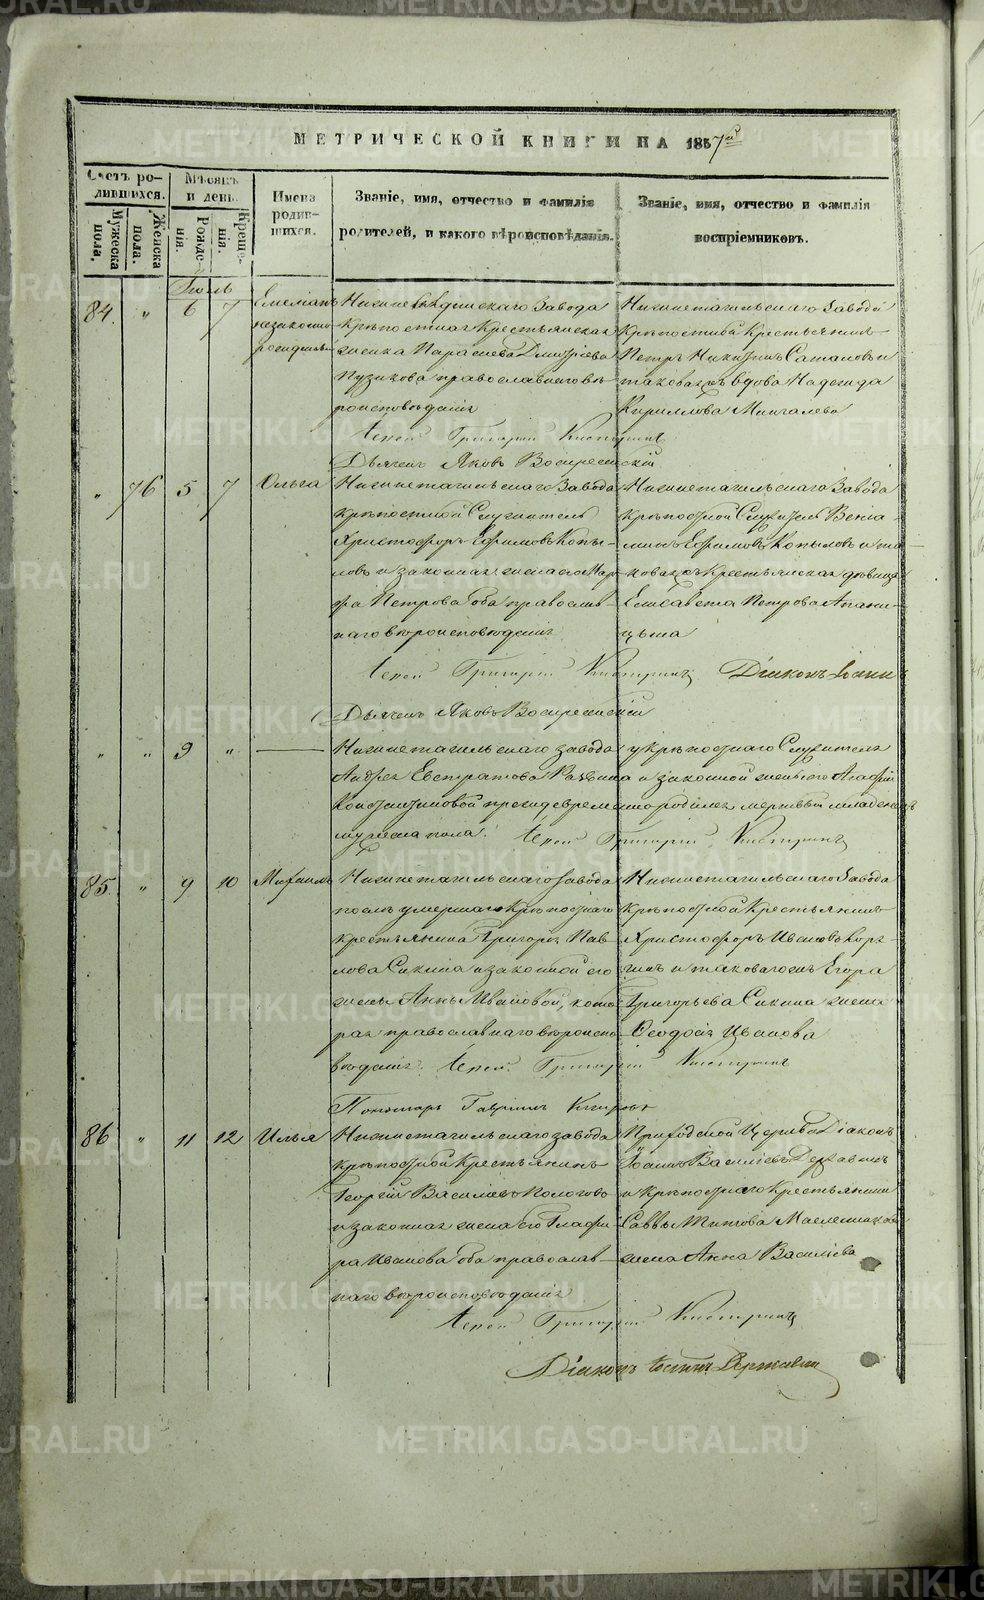 МЕТРИЧЕСКОЙ КНИГИ НА 1857й
Счетъ родившихся.
Мужеска пола.
Женска пола.
Мѣсяцъ и день.
Рожденія.
Крещенія.
Имена родившихся.
Званіе, имя, отчество и фамилія
родителей, и какого вѣроисповѣданія.
Званіе, имя, отчество и фамилія
воспріемниковъ.
Іюль
84. " 6 7 Емеліанъ
незаконно
рожденный
крѣпостная крестьянская
женка Параскева Дмитріева
Пузикова православнаго вѣ-
роисповѣданія
Нижнетагильскаго Завода
Крѣпостной Крестьянинъ
Петръ Никитинъ и
таковагожъ вдова Надежда
Кириллова
Іерей Григорій
Дьячекъ Яковъ Воскресенскій
" 76 5 7 Ольга
Нижнетагильскаго Завода
крѣпостной Служитель
Христофоръ Ефимовъ Копы-
ловъ и законная жена его Мар-
фа Петрова оба православ-
наго вѣроисповѣданія
Нижнетагильскаго Завода
крѣпостной Служитель Веніа-
минъ Ефимовъ Копыловъ и та-
ковагожъ Крестьянская дѣвица
Елисавета Петрова
Іерей Григорій Діаконъ Іоаннъ
Дьячекъ Яковъ Воскресенскій
" " 9 " —
Нижнетагильскаго завода у крѣпостнаго Служителя
Андрея Евстратова и законной жены его Агафіи
Константиновой преждевременно родился мертвый младенецъ
мужеска пола. Іерей Григорій
85. " 9 10 Михаилъ
Нижнетагильскаго завода
послѣ умершаго Крѣпостнаго
крестьянина Григорія Пав-
лова Сикина и законной его
жены Анны Ивановой, кото-
рая православнаго вѣроиспо-
вѣданія.
Нижнетагильскаго Завода
Крѣпостной Крестьянинъ
Христофоръ Ивановъ
и таковагожъ Егора
Григорьева Сикина жена
Ѳеодосія Иванова
Іерей Григорій
Пономарь Гавріилъ
86 " 11 12 Илья
Нижнетагильскаго завода
крѣпостной Крестьянинъ
Георгій Васильевъ
и законная жена его Глафи-
ра Иванова оба православ-
наго вѣроисповѣданія
Приходской Церкви Діаконъ
Іоаннъ Васильевъ Державинъ
и крѣпостнаго Крестьянина
Саввы Титова
жена Анна Васильева
Іерей Григорій
Діаконъ Іоаннъ Державинъ
METRIKI.GASO-URAL.RU